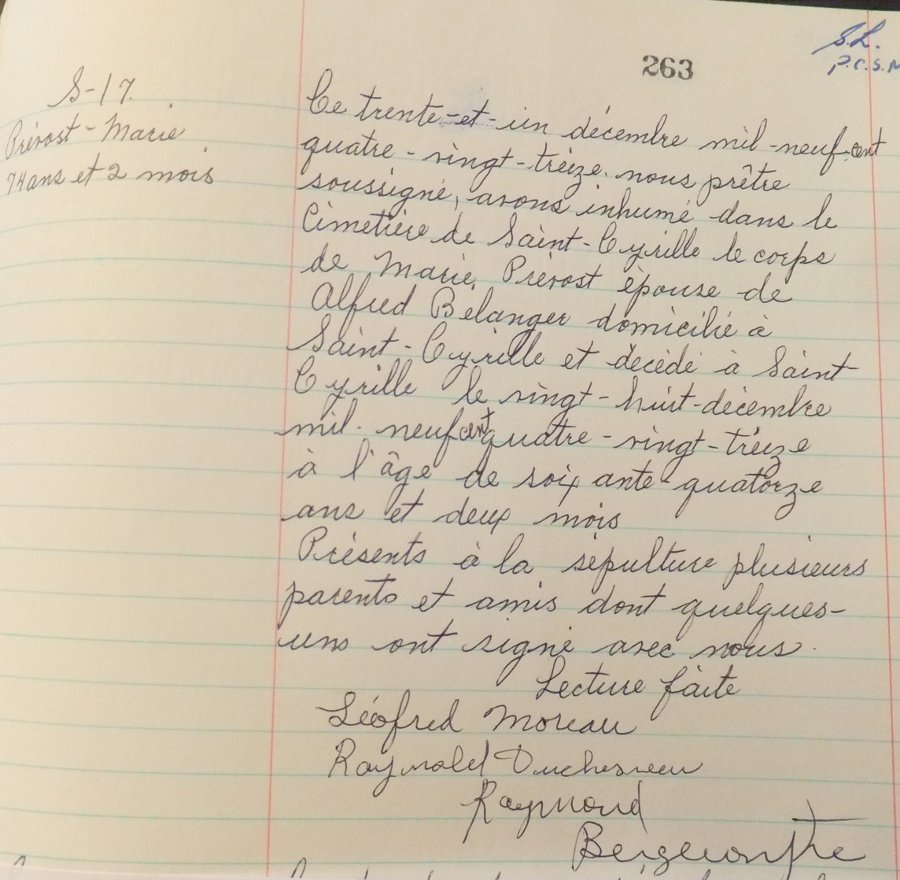 263
S.L.
P.C.S.M
S-17.
Prévost - Marie
74 ans et 2 mois
Ce trente-et-un décembre mil-neuf-cent
quatre-vingt-treize. nous prêtre
soussigné, avons inhumé dans le
Cimetière de Saint-Cyrille le corps
de Marie Prévost épouse de
Alfred Belanger domicilié à
Saint-Cyrille et décédé à Saint-
Cyrille le vingt-huit-décembre
mil-neuf cent quatre-vingt-treize
à l'âge de soixante-quatorze
ans et deux mois
Présents à la sépulture plusieurs
parents et amis dont quelques-
uns ont signé avec nous.
Lecture faite
Léofred Moreau
Raynald Duchesneau
Raymond